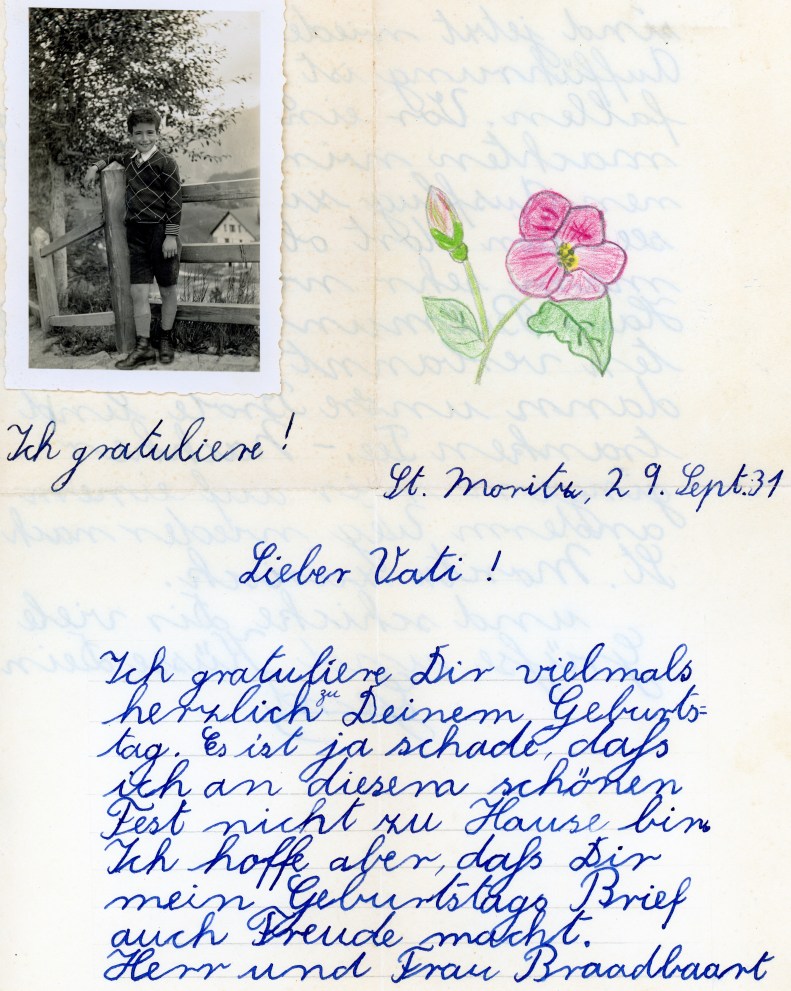 Ich gratuliere!
St. Moritz, 29. Sept. 31
Lieber Vati!
Ich gratuliere Dir vielmals
herzlich zu Deinem Geburts=
tag. Es ist ja schade, daß
ich an diesem schönen
Fest nicht zu Hause bin.
Ich hoffe aber, daß Dir
mein Geburtstags Brief
auch Freude macht.
Herr und Frau Braadbaart